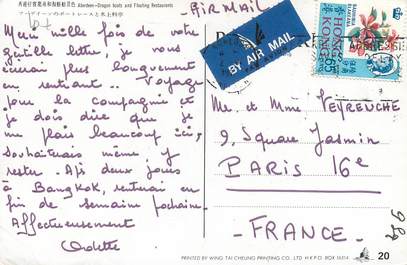 香港仔賽龍舟和海鮮舫景色 Aberdeen-Dragon boats and Floating Restaurants
アバディーンのボートレースと水上料亭
AIRMAIL
BY AIR MAIL
HONG KONG
65¢
Merci mille fois de votre
gentille lettre, je vous
écrirai plus longuement
en rentrant .. Voyage
pour la compagnie et
je dois dire que je
me plais beaucoup ici,
souhaiterais même y
rester. Suis deux jours
à BANGKOK, rentrerai en
fin de semaine prochaine.
Affectueusement
Odette
Mr. et Mme PEYREUCHE
9, Square Jasmin
PARIS 16e
- FRANCE -
PRINTED BY WING TAI CHEUNG PRINTING CO., LTD H.K.P.O. BOX 15314
20